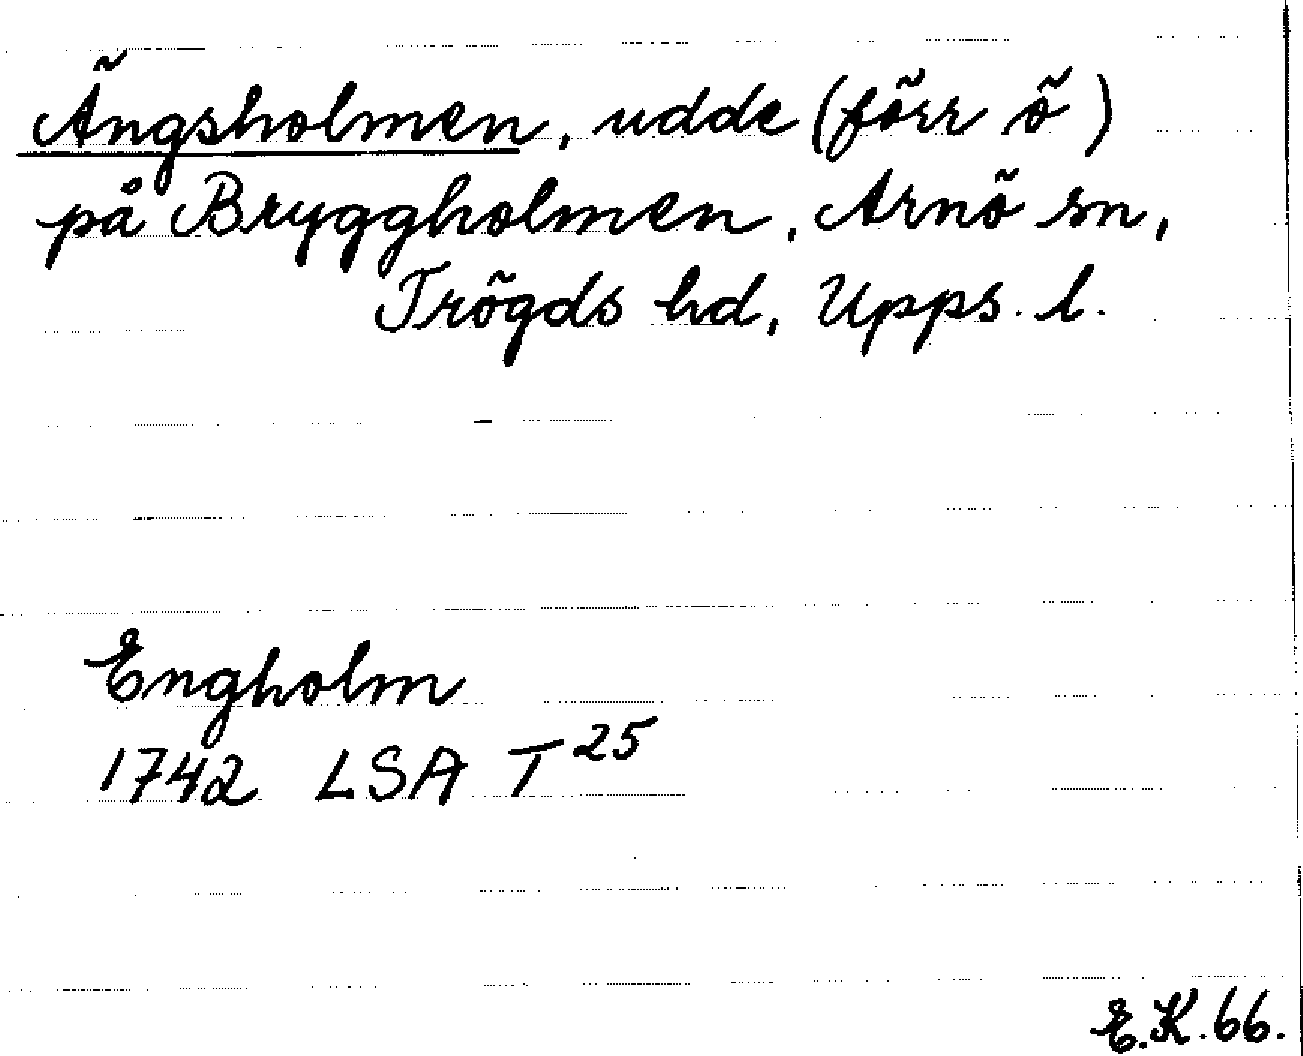 Ängsholmen, udde (förr ö)
på Bryggholmen, Arnö sn,
Trögds hd, Upps. l.
Engholm
1742 LSA T 25
E.K. 66.